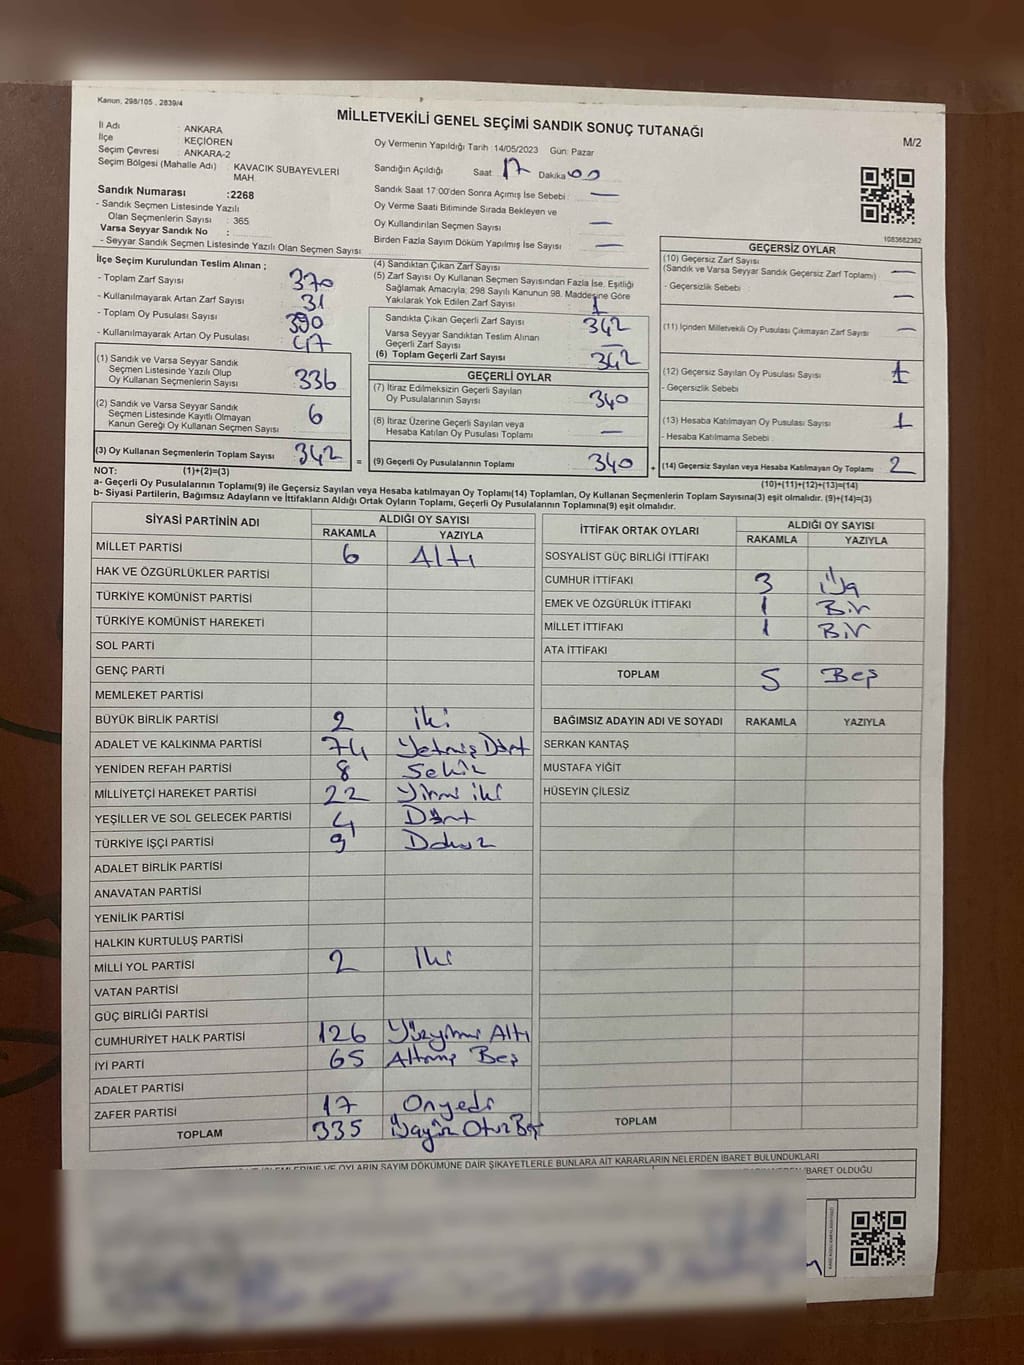 Kanun, 298/105 , 2839/4
MİLLETVEKİLİ GENEL SEÇİMİ SANDIK SONUÇ TUTANAĞI
M/2
İl Adı : ANKARA
İlçe : KEÇİÖREN
Seçim Çevresi : ANKARA-2
Seçim Bölgesi (Mahalle Adı) : KAVACIK SUBAYEVLERİ
MAH.
Sandık Numarası :2268
- Sandık Seçmen Listesinde Yazılı
Olan Seçmenlerin Sayısı : 365
Varsa Seyyar Sandık No :
- Seyyar Sandık Seçmen Listesinde Yazılı Olan Seçmen Sayısı
Oy Vermenin Yapıldığı Tarih :14/05/2023 Gün: Pazar
Sandığın Açıldığı Saat 17 Dakika 00
Sandık Saat 17:00'den Sonra Açımış İse Sebebi : —
Oy Verme Saati Bitiminde Sırada Bekleyen ve
Oy Kullandırılan Seçmen Sayısı —
Birden Fazla Sayım Döküm Yapılmış İse Sayısı —
1083682362
İlçe Seçim Kurulundan Teslim Alınan ;
- Toplam Zarf Sayısı 370
- Kullanılmayarak Artan Zarf Sayısı 31
- Toplam Oy Pusulası Sayısı 390
- Kullanılmayarak Artan Oy Pusulası 47
(1) Sandık ve Varsa Seyyar Sandık
Seçmen Listesinde Yazılı Olup
Oy Kullanan Seçmenlerin Sayısı 336
(2) Sandık ve Varsa Seyyar Sandık
Seçmen Listesinde Kayıtlı Olmayan
Kanun Gereği Oy Kullanan Seçmen Sayısı 6
(3) Oy Kullanan Seçmenlerin Toplam Sayısı 342 =
(4) Sandıktan Çıkan Zarf Sayısı
(5) Zarf Sayısı Oy Kullanan Seçmen Sayısından Fazla İse, Eşitliği
Sağlamak Amacıyla, 298 Sayılı Kanunun 98. Maddesine Göre
Yakılarak Yok Edilen Zarf Sayısı 1
Sandıkta Çıkan Geçerli Zarf Sayısı 342
Varsa Seyyar Sandıktan Teslim Alınan
Geçerli Zarf Sayısı —
(6) Toplam Geçerli Zarf Sayısı 342
GEÇERLİ OYLAR
(7) İtiraz Edilmeksizin Geçerli Sayılan
Oy Pusulalarının Sayısı 340
(8) İtiraz Üzerine Geçerli Sayılan veya
Hesaba Katılan Oy Pusulası Toplamı —
(9) Geçerli Oy Pusulalarının Toplamı 340 +
GEÇERSİZ OYLAR
(10) Geçersiz Zarf Sayısı
(Sandık ve Varsa Seyyar Sandık Geçersiz Zarf Toplamı) —
- Geçersizlik Sebebi : —
(11) İçinden Milletvekili Oy Pusulası Çıkmayan Zarf Sayısı —
(12) Geçersiz Sayılan Oy Pusulası Sayısı 1
- Geçersizlik Sebebi :
(13) Hesaba Katılmayan Oy Pusulası Sayısı 1
- Hesaba Katılmama Sebebi :
(14) Geçersiz Sayılan veya Hesaba Katılmayan Oy Toplamı 2
NOT: (1)+(2)=(3)
(10)+(11)+(12)+(13)=(14)
a- Geçerli Oy Pusulalarının Toplamı(9) ile Geçersiz Sayılan veya Hesaba katılmayan Oy Toplamı(14) Toplamları, Oy Kullanan Seçmenlerin Toplam Sayısına(3) eşit olmalıdır. (9)+(14)=(3)
b- Siyasi Partilerin, Bağımsız Adayların ve İttifakların Aldığı Ortak Oyların Toplamı, Geçerli Oy Pusulalarının Toplamına(9) eşit olmalıdır.
SİYASİ PARTİNİN ADI ALDIĞI OY SAYISI
RAKAMLA YAZIYLA
MİLLET PARTİSİ 6 Altı
HAK VE ÖZGÜRLÜKLER PARTİSİ
TÜRKİYE KOMÜNİST PARTİSİ
TÜRKİYE KOMÜNİST HAREKETİ
SOL PARTİ
GENÇ PARTİ
MEMLEKET PARTİSİ
BÜYÜK BİRLİK PARTİSİ 2 iki
ADALET VE KALKINMA PARTİSİ 74 Yetmiş Dört
YENİDEN REFAH PARTİSİ 8 Sekiz
MİLLİYETÇİ HAREKET PARTİSİ 22 Yirmi iki
YEŞİLLER VE SOL GELECEK PARTİSİ 4 Dört
TÜRKİYE İŞÇİ PARTİSİ 9 Dokuz
ADALET BİRLİK PARTİSİ
ANAVATAN PARTİSİ
YENİLİK PARTİSİ
HALKIN KURTULUŞ PARTİSİ
MİLLİ YOL PARTİSİ 2 İki
VATAN PARTİSİ
GÜÇ BİRLİĞİ PARTİSİ
CUMHURİYET HALK PARTİSİ 126 Yüzyirmi Altı
İYİ PARTİ 65 Altmış Beş
ADALET PARTİSİ
ZAFER PARTİSİ 17 Onyedi
TOPLAM 335 Üçyüz Otuz Beş
İTTİFAK ORTAK OYLARI ALDIĞI OY SAYISI
RAKAMLA YAZIYLA
SOSYALİST GÜÇ BİRLİĞİ İTTİFAKI
CUMHUR İTTİFAKI 3 Üç
EMEK VE ÖZGÜRLÜK İTTİFAKI 1 Bir
MİLLET İTTİFAKI 1 Bir
ATA İTTİFAKI
TOPLAM 5 Beş
BAĞIMSIZ ADAYIN ADI VE SOYADI RAKAMLA YAZIYLA
SERKAN KANTAŞ
MUSTAFA YİĞİT
HÜSEYİN ÇİLESİZ
TOPLAM
İŞLEMLERİNE VE OYLARIN SAYIM DÖKÜMÜNE DAİR ŞİKAYETLERLE BUNLARA AİT KARARLARIN NELERDEN İBARET BULUNDUKLARI
İBARET OLDUĞU